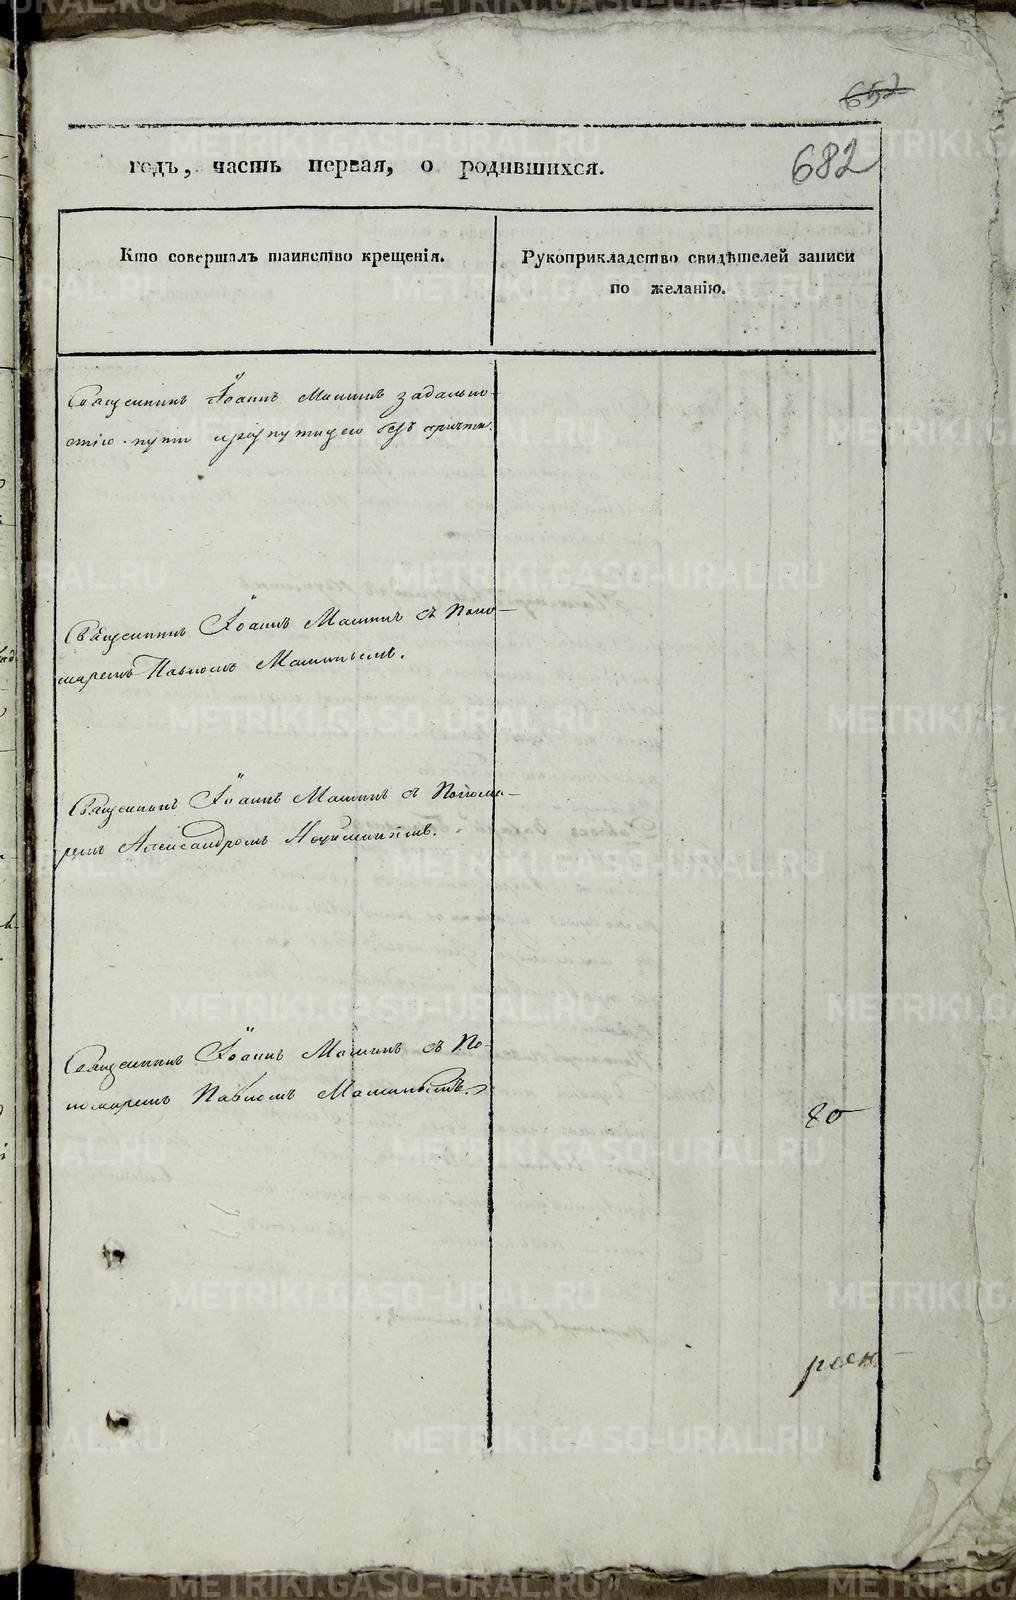 652
682
годъ, часть первая, о родившихся.
Кто совершалъ таинство крещенія.
Рукоприкладство свидѣтелей записи
по желанію.
Священникъ Іоаннъ Маминъ за дально-
стію пути безъ причта.
Священникъ Іоаннъ Маминъ съ Поно-
маремъ Павломъ Маминымъ.
Священникъ Іоаннъ Маминъ съ Понома-
ремъ Александромъ
Священникъ Іоаннъ Маминъ съ По-
номаремъ Павломъ Маминымъ.
METRIKI.GASO-URAL.RU